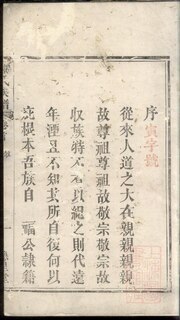 序 寅字號
從來人道之大在親親親親
故尊祖尊祖故敬宗敬宗故
收族特不有以紀之則代遠
年湮且不知其所自從何以
庇根本吾族自 福公隸籍